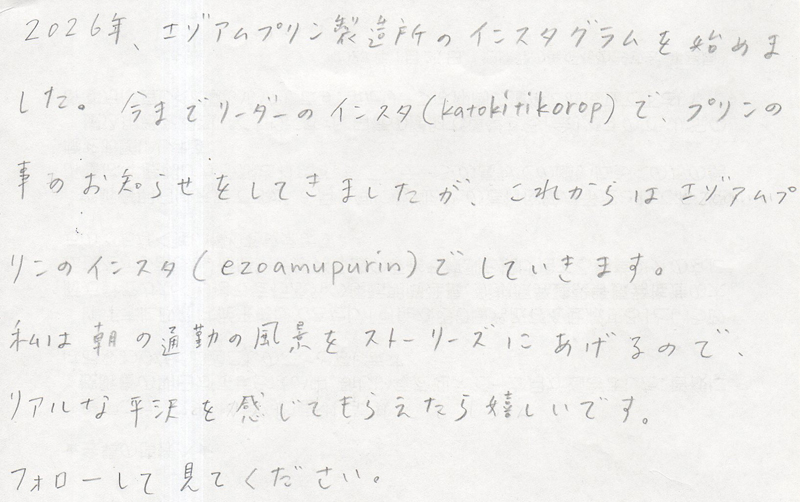 2026年、エゾアムプリン製造所のインスタグラムを始めま
した。今までリーダーのインスタ(katokitikorop)で、プリンの
事のお知らせをしてきましたが、これからはエゾアムプ
リンのインスタ(ezoamupurin)でしていきます。
私は朝の通勤の風景をストーリーズにあげるので、
リアルな平沢を感じてもらえたら嬉しいです。
フォローして見てください。